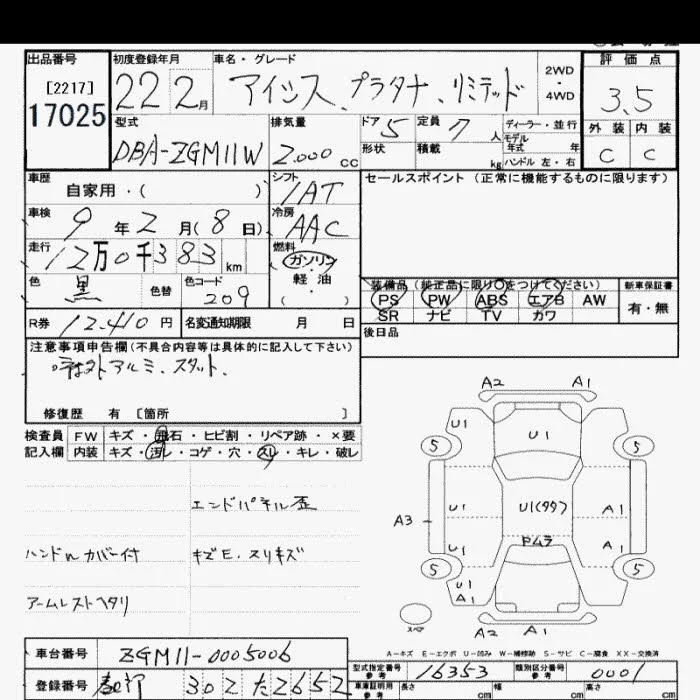 出品番号 初度登録年月 車名・グレード 評価点
[2217] 22 2月 アイシス、プラタナ、リミテッド 2WD・4WD 3.5
17025
型式 排気量 ドア 5 定員 7人 ディーラー・並行 外装 内装
DBA-ZGM11W 2.000cc 形状 積載 kg モデル年式 年 ハンドル 左・右 C C
車歴 シフト セールスポイント(正常に機能するものに限ります)
自家用・( ) 1AT
車検 9年2月(8日) 冷房 AAC
走行 12万0千383km 燃料 ガソリン・軽油 ( )
色 黒 色替 色コード 209
装備品(純正品に限り○をつけてください) 新車保証書
PS PW ABS エアB AW 有・無
SR ナビ TV カワ
R券 12.410円 名変通知期限 月 日 後日品
注意事項申告欄(不具合内容等は具体的に記入して下さい)
アルミ、スタット、
修復歴 有 [箇所 ]
検査員 FW キズ・飛石・ヒビ割・リペア跡・×要
記入欄 内装 キズ・汚レ・コゲ・穴・スレ・キレ・破レ
エンドパネル歪
ハンドルカバー付 キズE、スリキズ
アームレストヘタリ
A2 A1
U1
5 U1 5
U1 U1(99) A1
A3
U1 ドムラ A1
5 5
U1
A1
スペア
A2 A1
A-キズ E-エクボ U-凹み W-補修跡 S-サビ C-腐食 XX-交換済
車台番号 ZGM11-0005006 型式指定番号 参考 16353 類別区分番号 参考 0001
登録番号 302 た2652 車庫証明用 参考 長さ cm 幅 cm 高さ cm